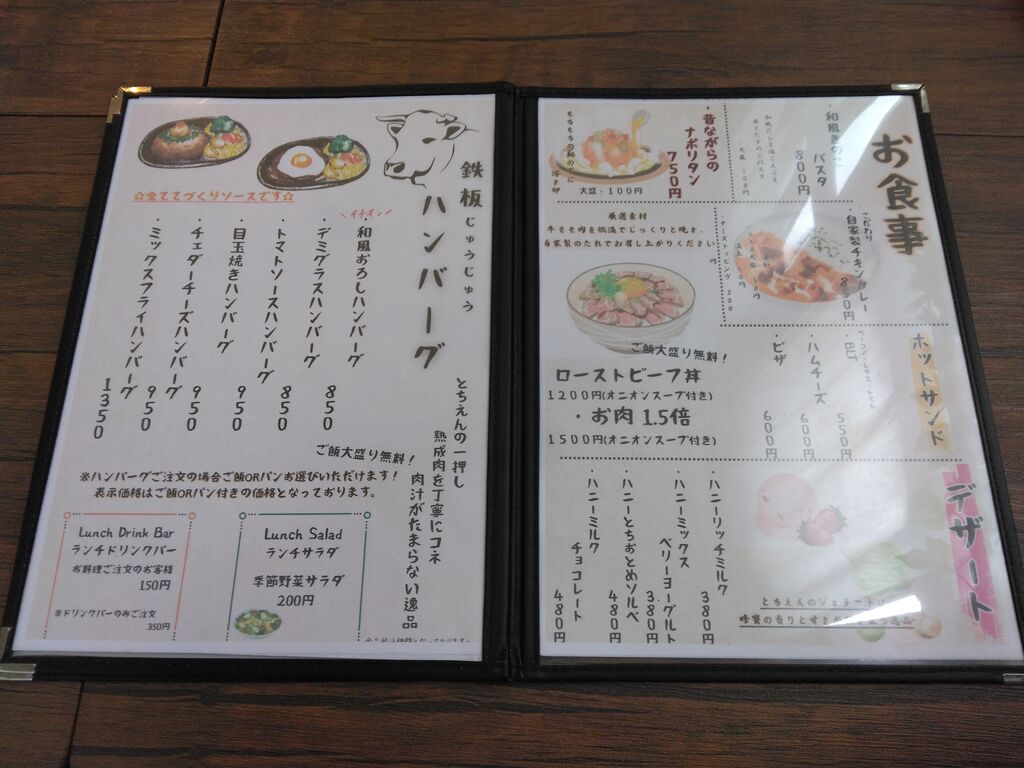 鉄板じゅうじゅう
ハンバーグ
とちえんの一押し
熟成肉を丁寧にコネ
肉汁がたまらない逸品
☆全ててづくりソースです☆
＼イチオシ／
・和風おろしハンバーグ 850
・デミグラスハンバーグ 850
・トマトソースハンバーグ 950
・目玉焼きハンバーグ 950
・チェダーチーズハンバーグ 950
・ミックスフライハンバーグ 1350
ご飯大盛り無料!
※ハンバーグご注文の場合ご飯ORパンお選びいただけます!
表示価格はご飯ORパン付きの価格となっております。
Lunch Drink Bar
ランチドリンクバー
お料理ご注文のお客様
150円
※ドリンクバーのみご注文
350円
Lunch Salad
ランチサラダ
季節野菜サラダ
200円
お食事
・和風きのこ
パスタ
800円
大盛 100円
・昔ながらの
ナポリタン
750円
もちもちの麺の下に
溶き卵
大盛:100円
こだわり
自家製チキンカレー
800円
厳選素材
牛モモ肉を低温でじっくりと焼き、
自家製のたれでお召し上がりください
ご飯大盛り無料!
ローストビーフ丼
1200円(オニオンスープ付き)
・お肉 1.5倍
1500円(オニオンスープ付き)
ホットサンド
・BLT
ベーコン・レタス・トマト
550円
・ハムチーズ
600円
・ピザ
600円
デザート
・ハニーリッチミルク
380円
・ハニーミックス
ベリーヨーグルト
380円
・ハニーとちおとめソルベ
480円
・ハニーミルク
チョコレート
480円
とちえんのジェラート